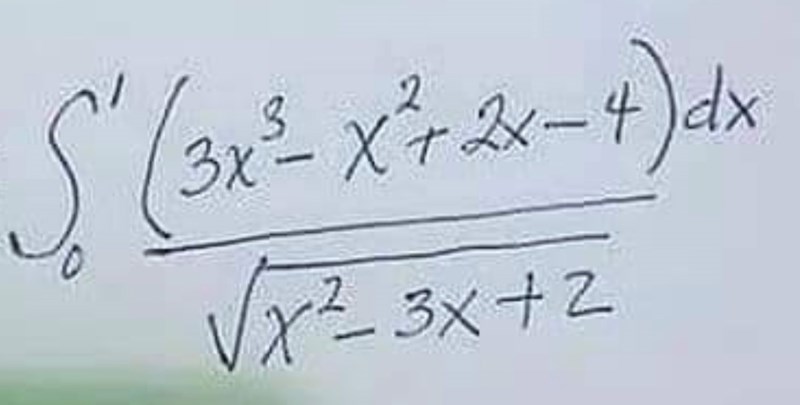 ∫₀¹ (3x³ - x² + 2x - 4) dx
√x² - 3x + 2